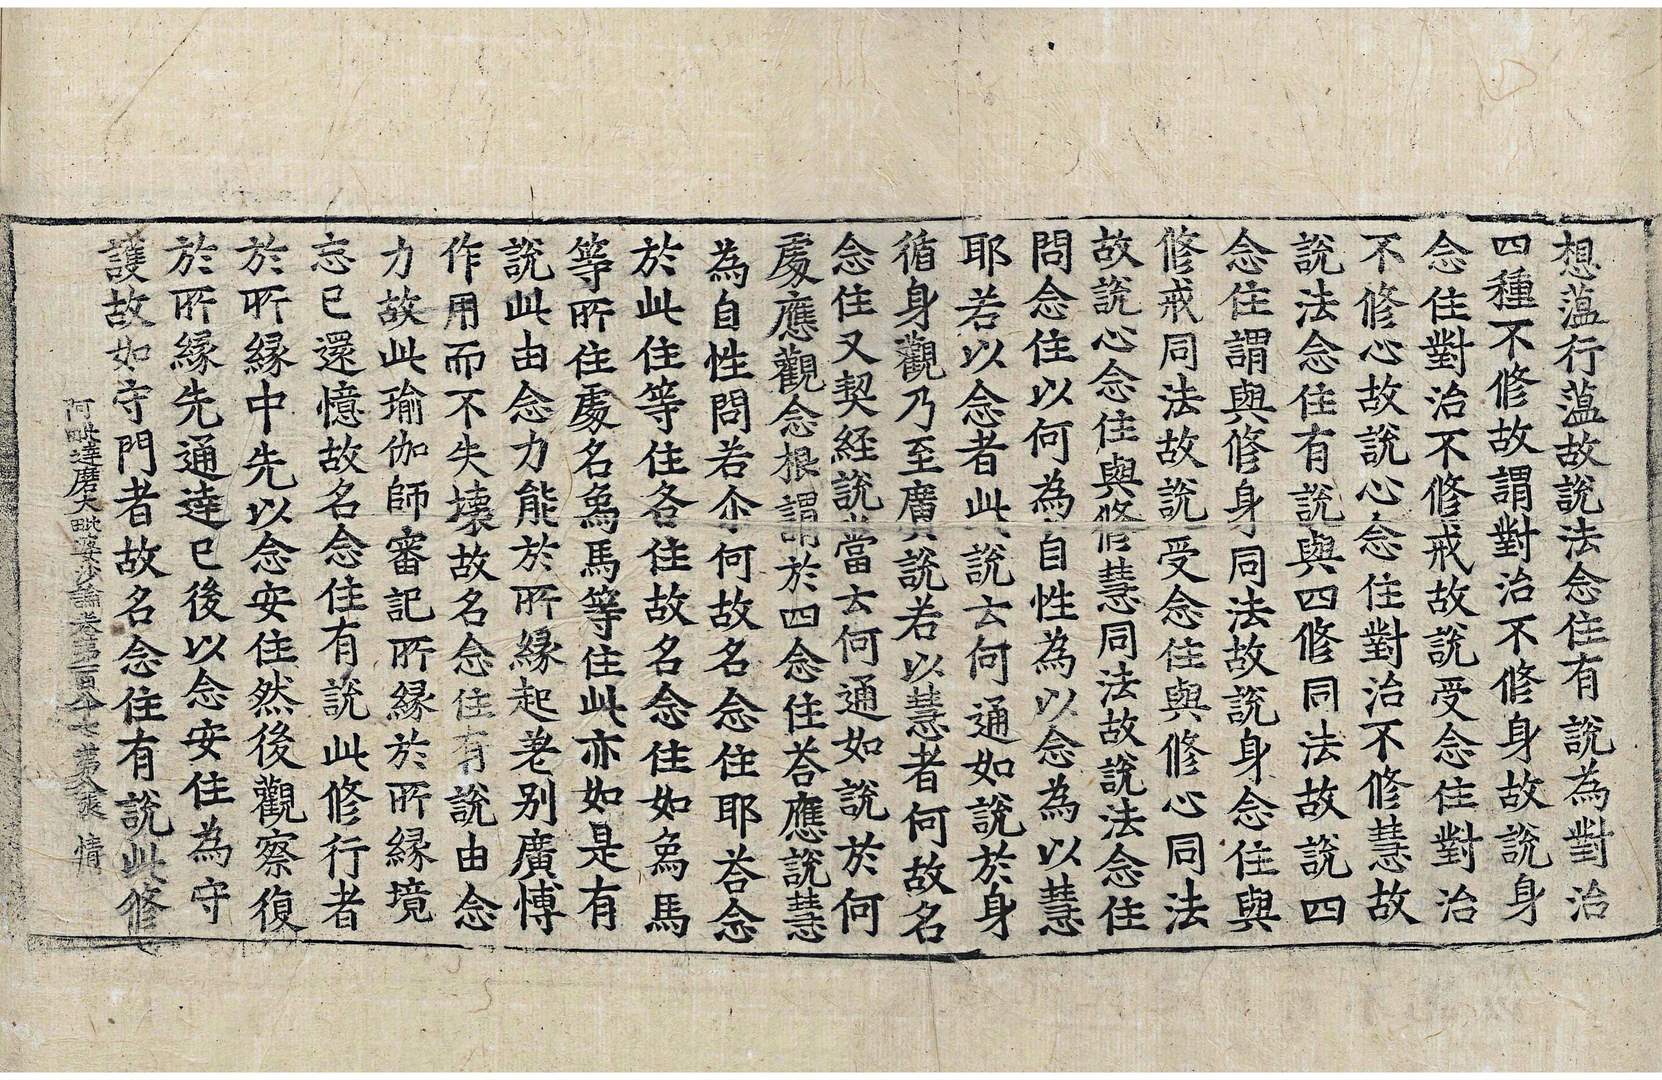 想薀行薀故說法念住有說為對治
四種不修故謂對治不修身故說身
念住對治不修戒故說受念住對治
不修心故說心念住對治不修慧故
說法念住有說與四修同法故說四
念住謂與修身同法故說身念住與
修戒同法故說受念住與修心同法
故說心念住與修慧同法故說法念住
問念住以何為自性為以念為以慧
耶若以念者此說云何通如說於身
循身觀乃至廣說若以慧者何故名
念住又契経說當云何通如說於何
處應觀念根謂於四念住荅應說慧
為自性問若尒何故名念住耶荅念
於此住等住各住故名念住如象馬
等所住處名象馬等住此亦如是有
說此由念力能於所縁起差別廣博
作用而不失壞故名念住有說由念
力故此瑜伽師審記所縁於所縁境
忘已還憶故名念住有說此修行者
於所縁中先以念安住然後觀察復
於所縁先通達已後以念安住為守
護故如守門者故名念住有說此修
阿毗達磨大毗婆沙論卷第一百八十七 第八張 情